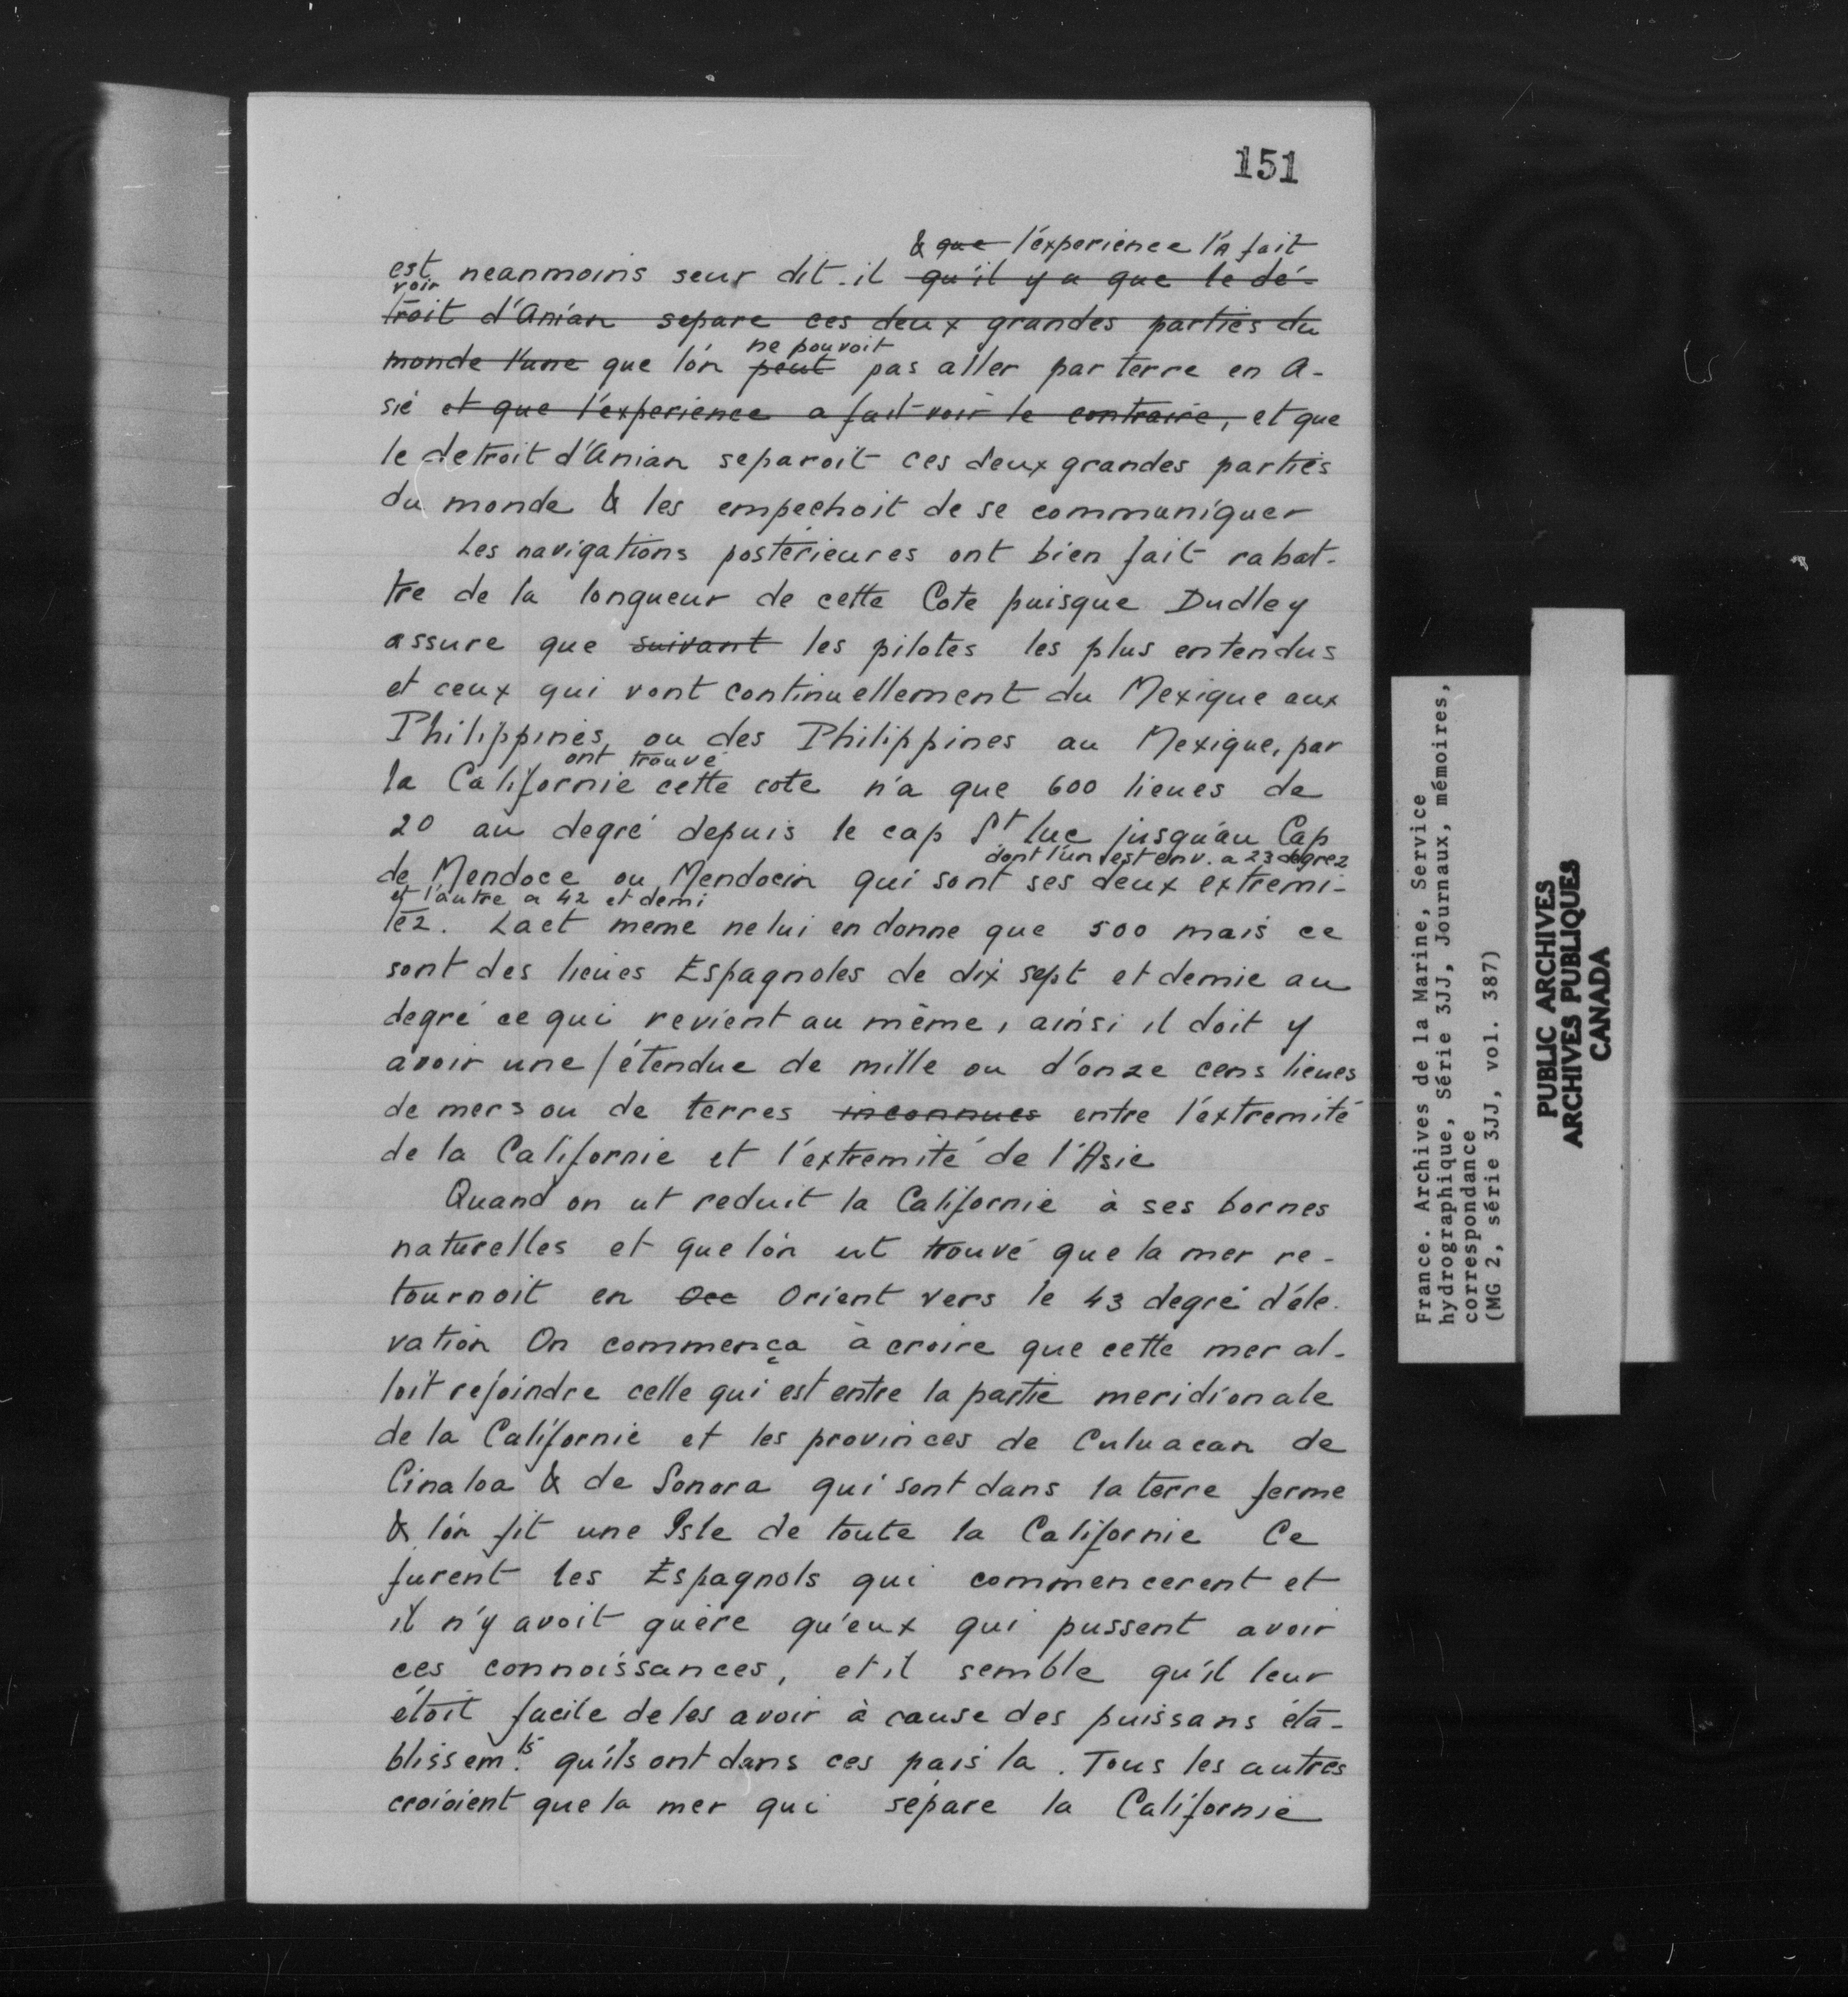 151
& ~~que~~ l'experience l'A fait
est neanmoins seur dit-il ~~qu'il y a que le dé-~~
voir
~~troit d'Anian separe ces deux grandes parties du~~
ne pouvoit
~~monde l'une~~ que l'on ~~peut~~ pas aller par terre en A-
sie ~~et que l'experience a fait voir le contraire,~~ et que
le detroit d'Anian separoit ces deux grandes parties
du monde & les empechoit de se communiquer
Les navigations posterieures ont bien fait rabat-
tre de la longueur de cette Cote puisque Dudley
assure que ~~suivant~~ les pilotes les plus entendus
et ceux qui vont continuellement du Mexique aux
Philippines, ou des Philippines au Mexique, par
ont trouvé
la Californie cette cote n'a que 600 lieues de
20 au degré depuis le cap St luc jusqu'au Cap
dont l'un est env. a 23 degrez
de Mendoce ou Mendocin qui sont ses deux extremi-
et l'autre a 42 et demi
tez. Laet meme ne lui en donne que 500 mais ce
sont des lieues Espagnoles de dix sept et demie au
degré ce qui revient au même, ainsi il doit y
avoir une / étendue de mille ou d'onze cens lieues
de mers ou de terres ~~inconnues~~ entre l'extremité
de la Californie et l'extremité de l'Asie
Quand on ut reduit la Californie à ses bornes
naturelles et que l'on ut trouvé que la mer re-
tournoit en ~~Occ~~ Orient vers le 43 degré d'éle-
vation On commença à croire que cette mer al-
loit rejoindre celle qui est entre la partie meridionale
de la Californie et les provinces de Culuacan de
Cinaloa & de Sonora qui sont dans la terre ferme
& l'on fit une Isle de toute la Californie Ce
furent les Espagnols qui commencerent et
il n'y avoit guère qu'eux qui pussent avoir
ces connoissances, et il semble qu'il leur
étoit facile de les avoir à cause des puissans éta-
blissem.ts qu'ils ont dans ces païs la. Tous les autres
croioient que la mer qui sépare la Californie
France. Archives de la Marine, Service
hydrographique, Série 3JJ, Journaux, mémoires,
correspondance
(MG 2, série 3JJ, vol. 387)
PUBLIC ARCHIVES
ARCHIVES PUBLIQUES
CANADA